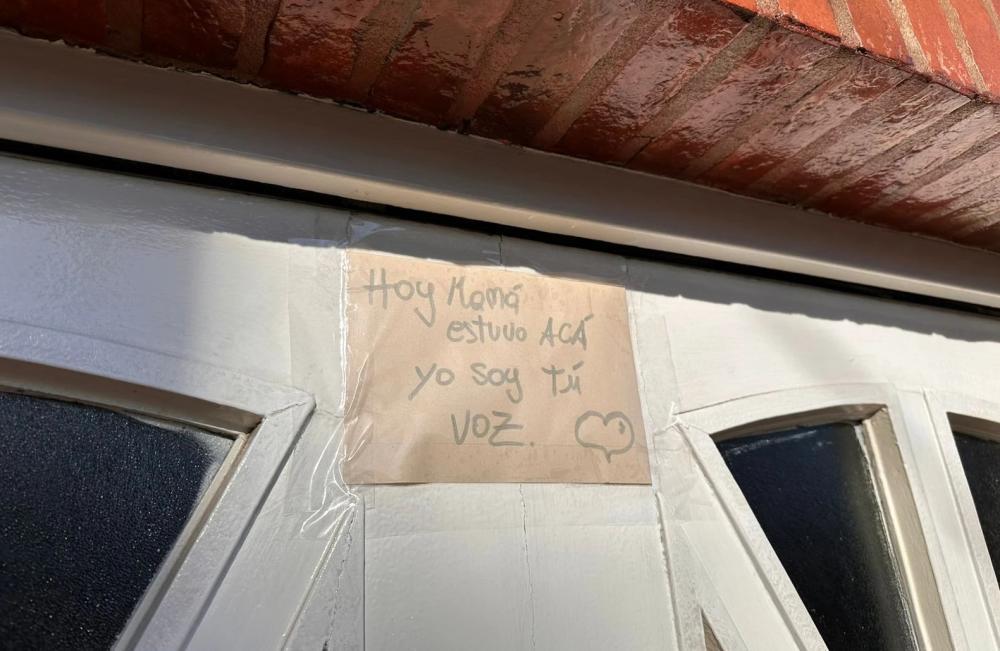 Hoy Mamá
estuvo ACÁ
yo soy tú
VOZ.